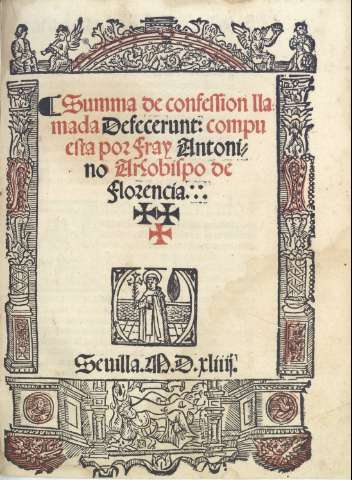 Summa de confession lla
mada Defecerunt: compu
esta por fray Antoni-
no Arçobispo de
Florencia.:.
Sevilla. M.D.xliiij.